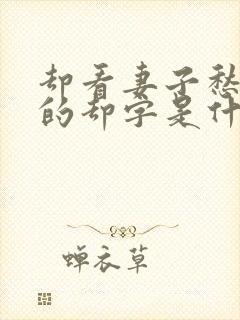 却看妻子愁
的却字是什
蝉衣草